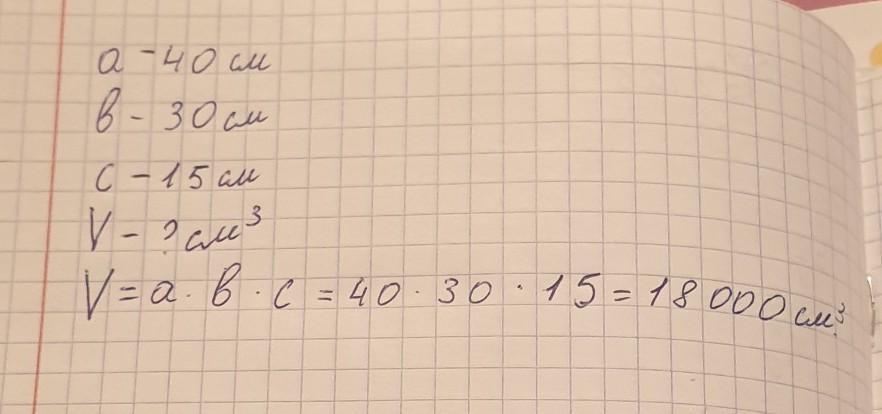 а - 40 см
в - 30 см
с - 15 см
V - ? см³
V = а · в · с = 40 · 30 · 15 = 18 000 см³